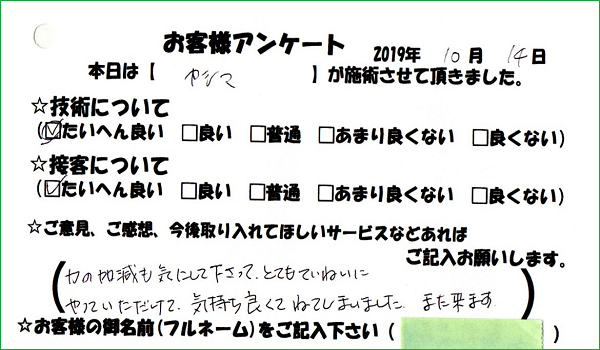 お客様アンケート 2019年 10月 14日
本日は【 カシマ 】が施術させて頂きました。
☆技術について
(☑たいへん良い □良い □普通 □あまり良くない □良くない)
☆接客について
(☑たいへん良い □良い □普通 □あまり良くない □良くない)
☆ご意見、ご感想、今後取り入れてほしいサービスなどあれば
ご記入お願いします。
(力の加減も気にして下さって、とてもていねいに
やっていただけて、気持ち良くてねてしまいました。また来ます)
☆お客様の御名前(フルネーム)をご記入下さい( )